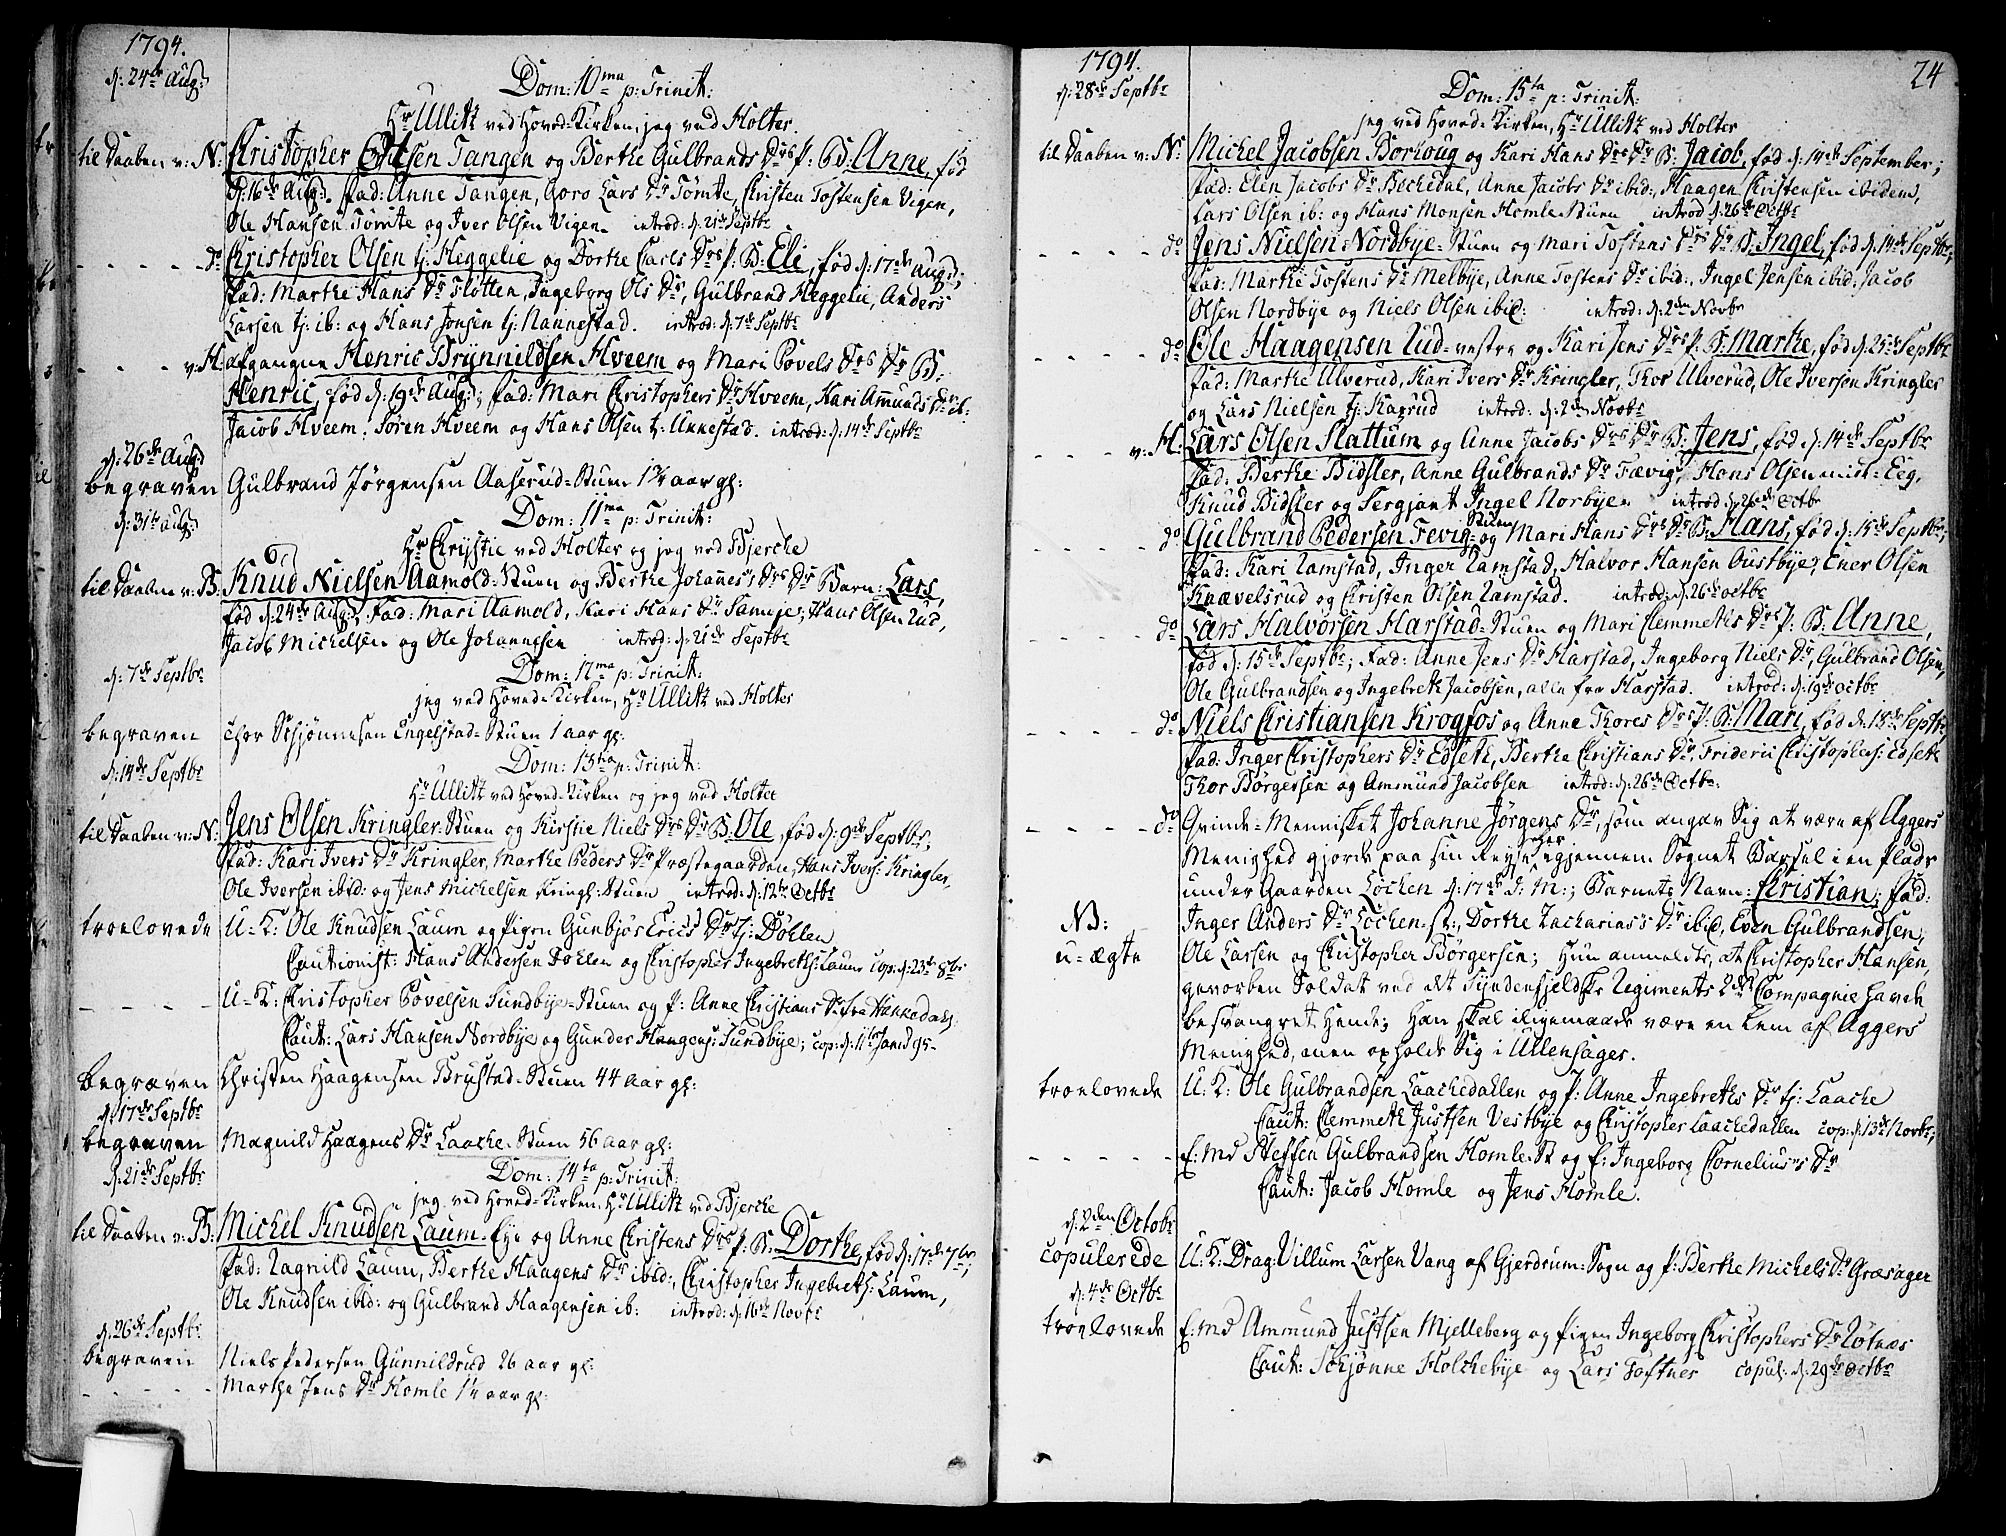 1794.
d: 24de Aug:
Dom: 10ma p: Trinit:
Hr Ullitz ved Hoved-Kirken, jeg ved Holter.
til Daaben v: N: Christopher Olsen Tangen og Berthe Gulbrands Drs P: B: Anne, fød
d: 16de Aug: fad: Anne Tangen, Goro Lars Dr Tømte, Christen Tostensen Vigen,
Ole Hansen Tømte og Iver Olsen Vigen. introd: d: 21de Septbr
- - - - do Christopher Olsen tj: Heggelie og Dorthe Carls Drs P: B: Eli, fød d: 17de Aug:;
fad: Marthe Hans Dr Flotten, Ingeborg Ols Dr, Gulbrand Heggelie, Anders
Larsen tj: ib: og Hans Jonsen tj: Nannestad. introd: d: 7de Septbr
- - - - v: H: afgangne Henric Brynnildsen Hveem og Mari Povels Drs Dr B:
Henric, fød d: 19de Aug:; fad: Mari Christophers Dr Hveem, Kari Amunds Dr ib:
Jacob Hveem, Søren Hveem og Hans Olsen tj: Unnestad. introd: d: 14de Septbr
d: 26de Aug:
begraven Gulbrand Jørgensen Aaserud-Stuen 1 3/4 aar gl:
d: 31te Aug:
Dom: 11ma p: Trinit:
Hr Chrystie ved Holter og jeg ved Bjerche
til Daaben v: B: Knud Nielsen Aamold-Stuen og Berthe Johannes's Drs Dr Barn: Lars,
fød d: 24de Aug:, Fad: Mari Aamold, Kari Hans Dr Samuje, Hans Olsen Rud,
Jacob Michelsen og Ole Johannesen introd: d: 21de Septbr
d: 7de Septbr
Dom: 12ma p: Trinit:
jeg ved Hoved-Kirken, Hr Ullitz ved Holter
begraven Thor Schjønnesen Engelstad-Stuen 1 aar gl:
d: 14de Septbr
Dom: 13tia p: Trinit:
Hr Ullitz ved Hoved-Kirken og jeg ved Holter
til Daaben v: N: Jens Olsen Kringler-Stuen og Kirstie Niels Drs Dr B: Ole, fød d: 9de Septbr;
fad: Kari Ivers Dr Kringler, Marthe Peders Dr Præstegaarden, Hans Ivers: Kringler,
Ole Iversen ibid: og Jens Michelsen Kringl: Stuen introd: d: 12te Octbr
troelovede U-K: Ole Knudsen Laum og Pigen Gunbjør Erics Dr tj: Døhlen
Cautionist: Hans Andersen Døhlen og Christopher Ingebreths: Laum cop: d: 23de 8br
- - - U-K: Christopher Povelsen Sundbye-Stuen og P: Anne Christians Dr fra Hakkedals:
Caut: Lars Hansen Nordbye og Gunder Haagens: Sundbye; cop: d: 11te Jan: 95-
begraven Christen Haagensen Brustad-Stuen 44 aar gl:
d: 17de Septbr
begraven Magnild Haagens Dr Laache-Stuen 56 aar gl:
d: 21de Septbr
Dom: 14ta p: Trinit:
jeg ved Hoved-Kirken, Hr Ullitz ved Bjerche
til Daaben v: B: Michel Knudsen Laum-Eye og Anne Christens Drs P: B: Dorthe, fød d: 17de 7br;
fad: Ragnild Laum, Berthe Haagens Dr ibid:, Christopher Ingebreths: Laum,
Ole Knudsen ibid: og Gulbrand Haagensen ib: introd: d: 16de Novbr
d: 26de Septbr
begraven Niels Pedersen Gunnildrud 26 aar gl:
- - - - Marthe Jens Dr Homle 1 1/4 aar gl:
24
1794.
d: 28de Septbr
Dom: 15ta p: Trinit:
jeg ved Hoved-Kirken, Hr Ullitz ved Holter
til Daaben v: N: Michel Jacobsen Borhoug og Kari Hans Drs Dr B: Jacob, fød d: 14de September;
fad: Elin Jacobs Dr Bechedal, Anne Jacobs Dr ibid:, Haagen Christensen ibidem,
Lars Olsen ib: og Hans Monsen Homle-Stuen introd: d: 26de Octbr
- - - - do Jens Nielsen Nordbye-Stuen og Mari Tostens Drs Dr B: Ingel, fød d: 14de Septbr;
fad: Marthe Tostens Dr Melbye, Anne Tostens Dr ibid:, Ingel Jensen ibid: Jacob
Olsen Nordbye og Niels Olsen ibid: introd: d: 2den Novbr
- - - - do Ole Haagensen Rud-vestre og Kari Jens Drs P: B: Marthe, fød d: 25de Septbr
fad: Marthe Ulverud, Kari Ivers Dr Kringler, Thor Ulverud, Ole Iversen Kringler
og Lars Nielsen tj: Kaxrud introd: d: 2den Novbr
- - - v: H: Lars Olsen Slattum og Anne Jacobs Drs Dr B: Jens, fød d: 14de Septbr
fad: Berthe Bidsler, Anne Gulbrands Dr Fævig, Hans Olsen midt-Eeg,
Knud Bidsler og Sergjant Ingel Norbye. introd: d: 26de Octbr
- - - - do Gulbrand Pedersen Fevig-Stuen og Mari Hans Drs Dr B: Hans, fød d: 15de Septbr;
fad: Kari Ramstad, Inger Ramstad, Halvor Hansen Austbye, Ener Olsen
Knævelsrud og Christen Olsen Ramstad. introd: d: 26de octbr
- - - - do Lars Halvorsen Harstad-Stuen og Mari Clemmeths Drs P: B: Anne,
fød d: 15de Septbr; Fad: Anne Jens Dr Harstad, Ingeborg Niels Dr, Gulbrand Olsen,
Ole Gulbrandsen og Ingebreth Jacobsen, alle fra Harstad. introd: d: 19de octbr
- - - - do Niels Christiansen Krogfos og Anne Thores Drs P: B: Mari, fød d: 18de Septbr,
fad: Inger Christophers Dr Edseth, Berthe Christians Dr, Frideric Christophers: Edseth
Thor Børgersen og Ammund Jacobsen introd: d: 26de Octbr:
- - - - do Qvinde-Mennisket Johanne Jørgens Dr, som angav Sig at være af Aggers
Menighed gjorde paa sin Reyse her igjennem Sognet Barsel i en flade
under Gaarden Løchen d: 17de d: M:; Barnets Navn: Christian; fad:
NB: Inger Anders Dr Løchen-st:, Dorthe Zacharias's Dr ibid, Even Gulbrandsen,
u-ægte Ole Larsen og Christopher Børgersen; Hun anmeldte, at Christopher Hansen,
gevorben Soldat ved det Syndenfjeldske Regiments 2det Compagnie havde
besvangret Hende; Han skal iligemaade være en Lem af Aggers
Menighed, men opholde Sig i Ullensager.
troelovede U: K: Ole Gulbrandsen Laachedahlen og P: Anne Ingebreths Dr tj: Laache
Caut: Clemmeth Justsen Vestbye og Christopher Laachedahlen cop: d: 13de Novbr;
- - - - - E: Md Steffen Gulbrandsen Homle-St og E: Ingeborg Cornelius's Dr
Caut: Jacob Homle og Jens Homle.
d: 2den Octobr
copulerede U: K: Drag: Villum Larsen Vang af Gjerdrum-Sogn og P: Berthe Michels Dr Græsager
d: 4de Octbr
troelovede E: Md Ammund Justsen Mjelleberg og Pigen Ingeborg Christophers Dr Rotnæs
Caut: Schjønne Holchebye og Lars Toftner copul: d: 29de Octbr